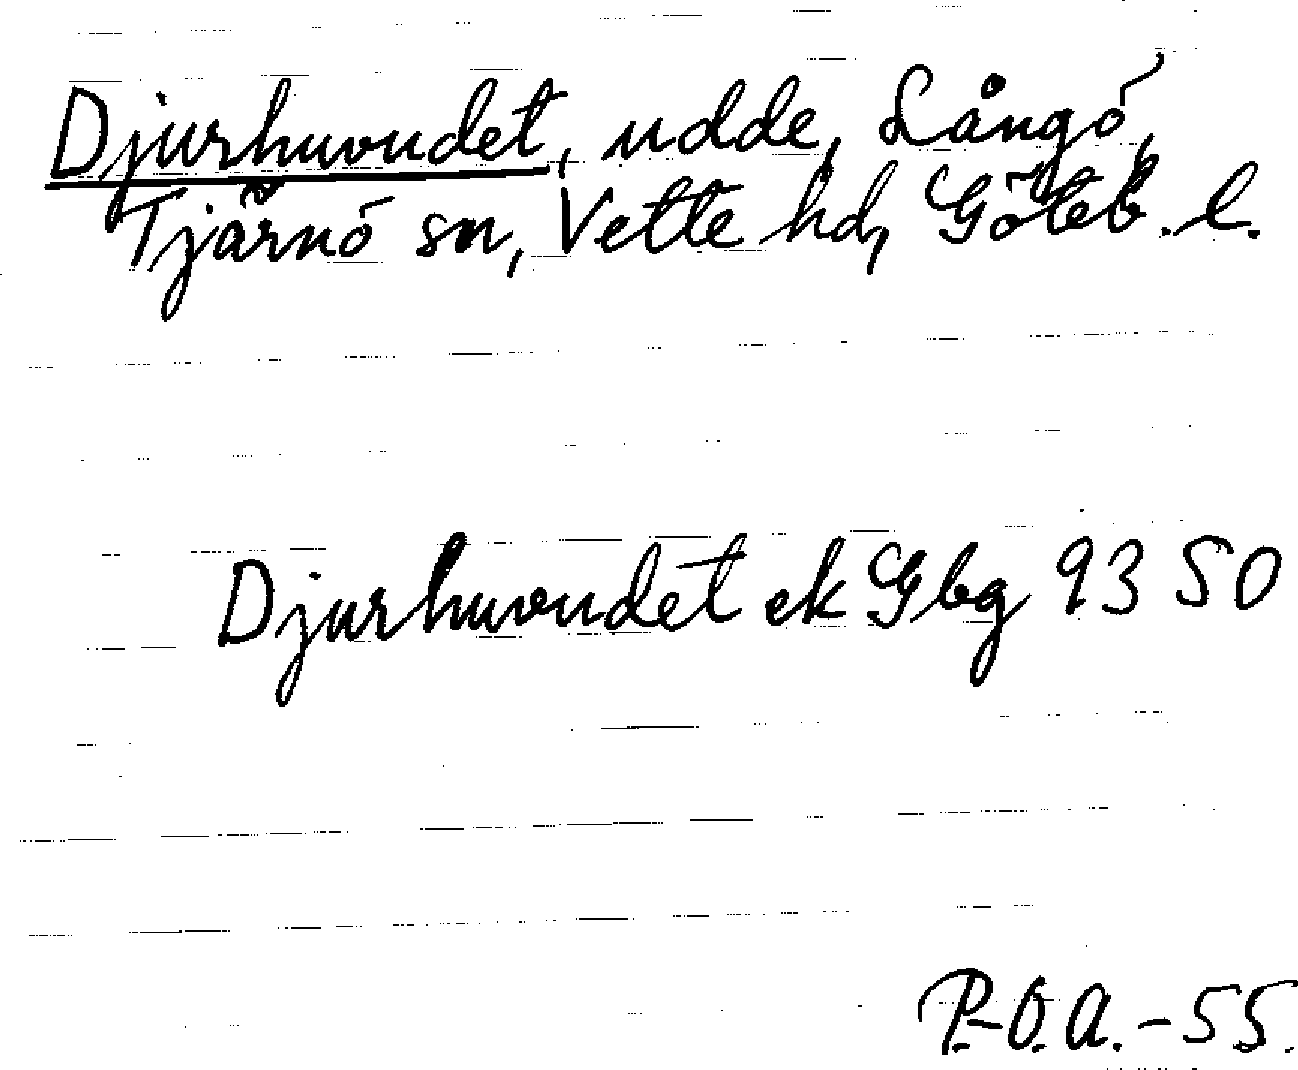 Djurhuvudet, udde, Långö,
Tjärnö sn, Vette hd, Göteb. l.
Djurhuvudet ek Gbg 93 50
P.-O.A. -55.